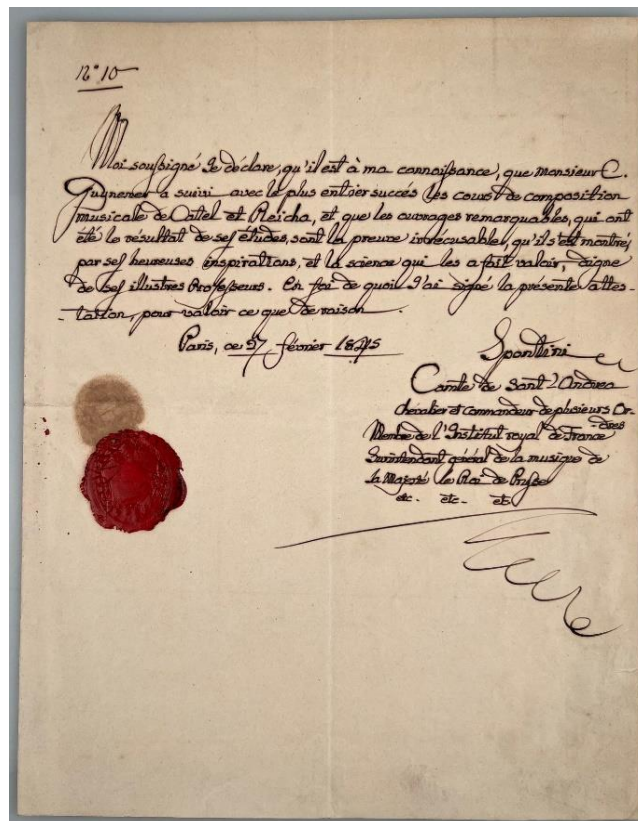 n.° 10
Moi soussigné Je déclare, qu'il est à ma connaissance, que monsieur C.
Guynemer a suivi avec le plus entier succés les cours de composition
musicale de Catel et Reicha, et que les ouvrages remarquables, qui ont
été le résultat de ses études, sont la preuve irrécusable, qu'il s'est montré,
par ses heureuses inspirations, et la science qui les a fait valoir, digne
de ses illustres Professeurs. En foi de quoi J'ai signé la présente attes-
-tation, pour valoir ce que de raison.
Paris, ce 27 février 1845
Spontini
Comte de Sant'Andrea
chevalier et commandeur de plusieurs Or-
-dres
Membre de l'Institut royal de France
Surintendant général de la musique de
sa Majesté le Roi de Prusse
etc. etc. etc